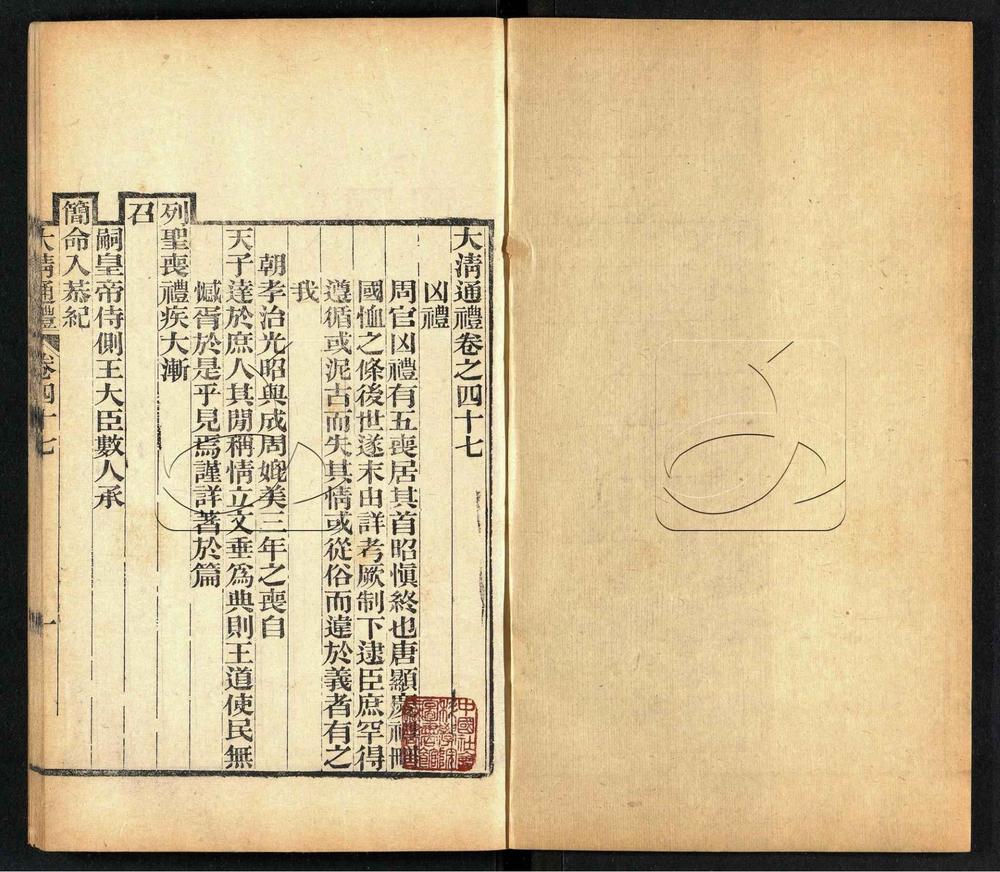 大淸通禮卷之四十七
凶禮
周官凶禮有五喪居其首昭愼終也唐顯慶禮刪
國恤之條後世遂末由詳考厥制下逮臣庶罕得
遵循或泥古而失其情或從俗而違於義者有之
我
朝孝治光昭與成周媲美三年之喪自
天子達於庶人其閒稱情立文垂爲典則王道使民無
憾胥於是乎見焉謹詳著於篇
列聖喪禮疾大漸
召
嗣皇帝侍側王大臣數人承
簡命入恭紀
大淸通禮 卷四十七 一